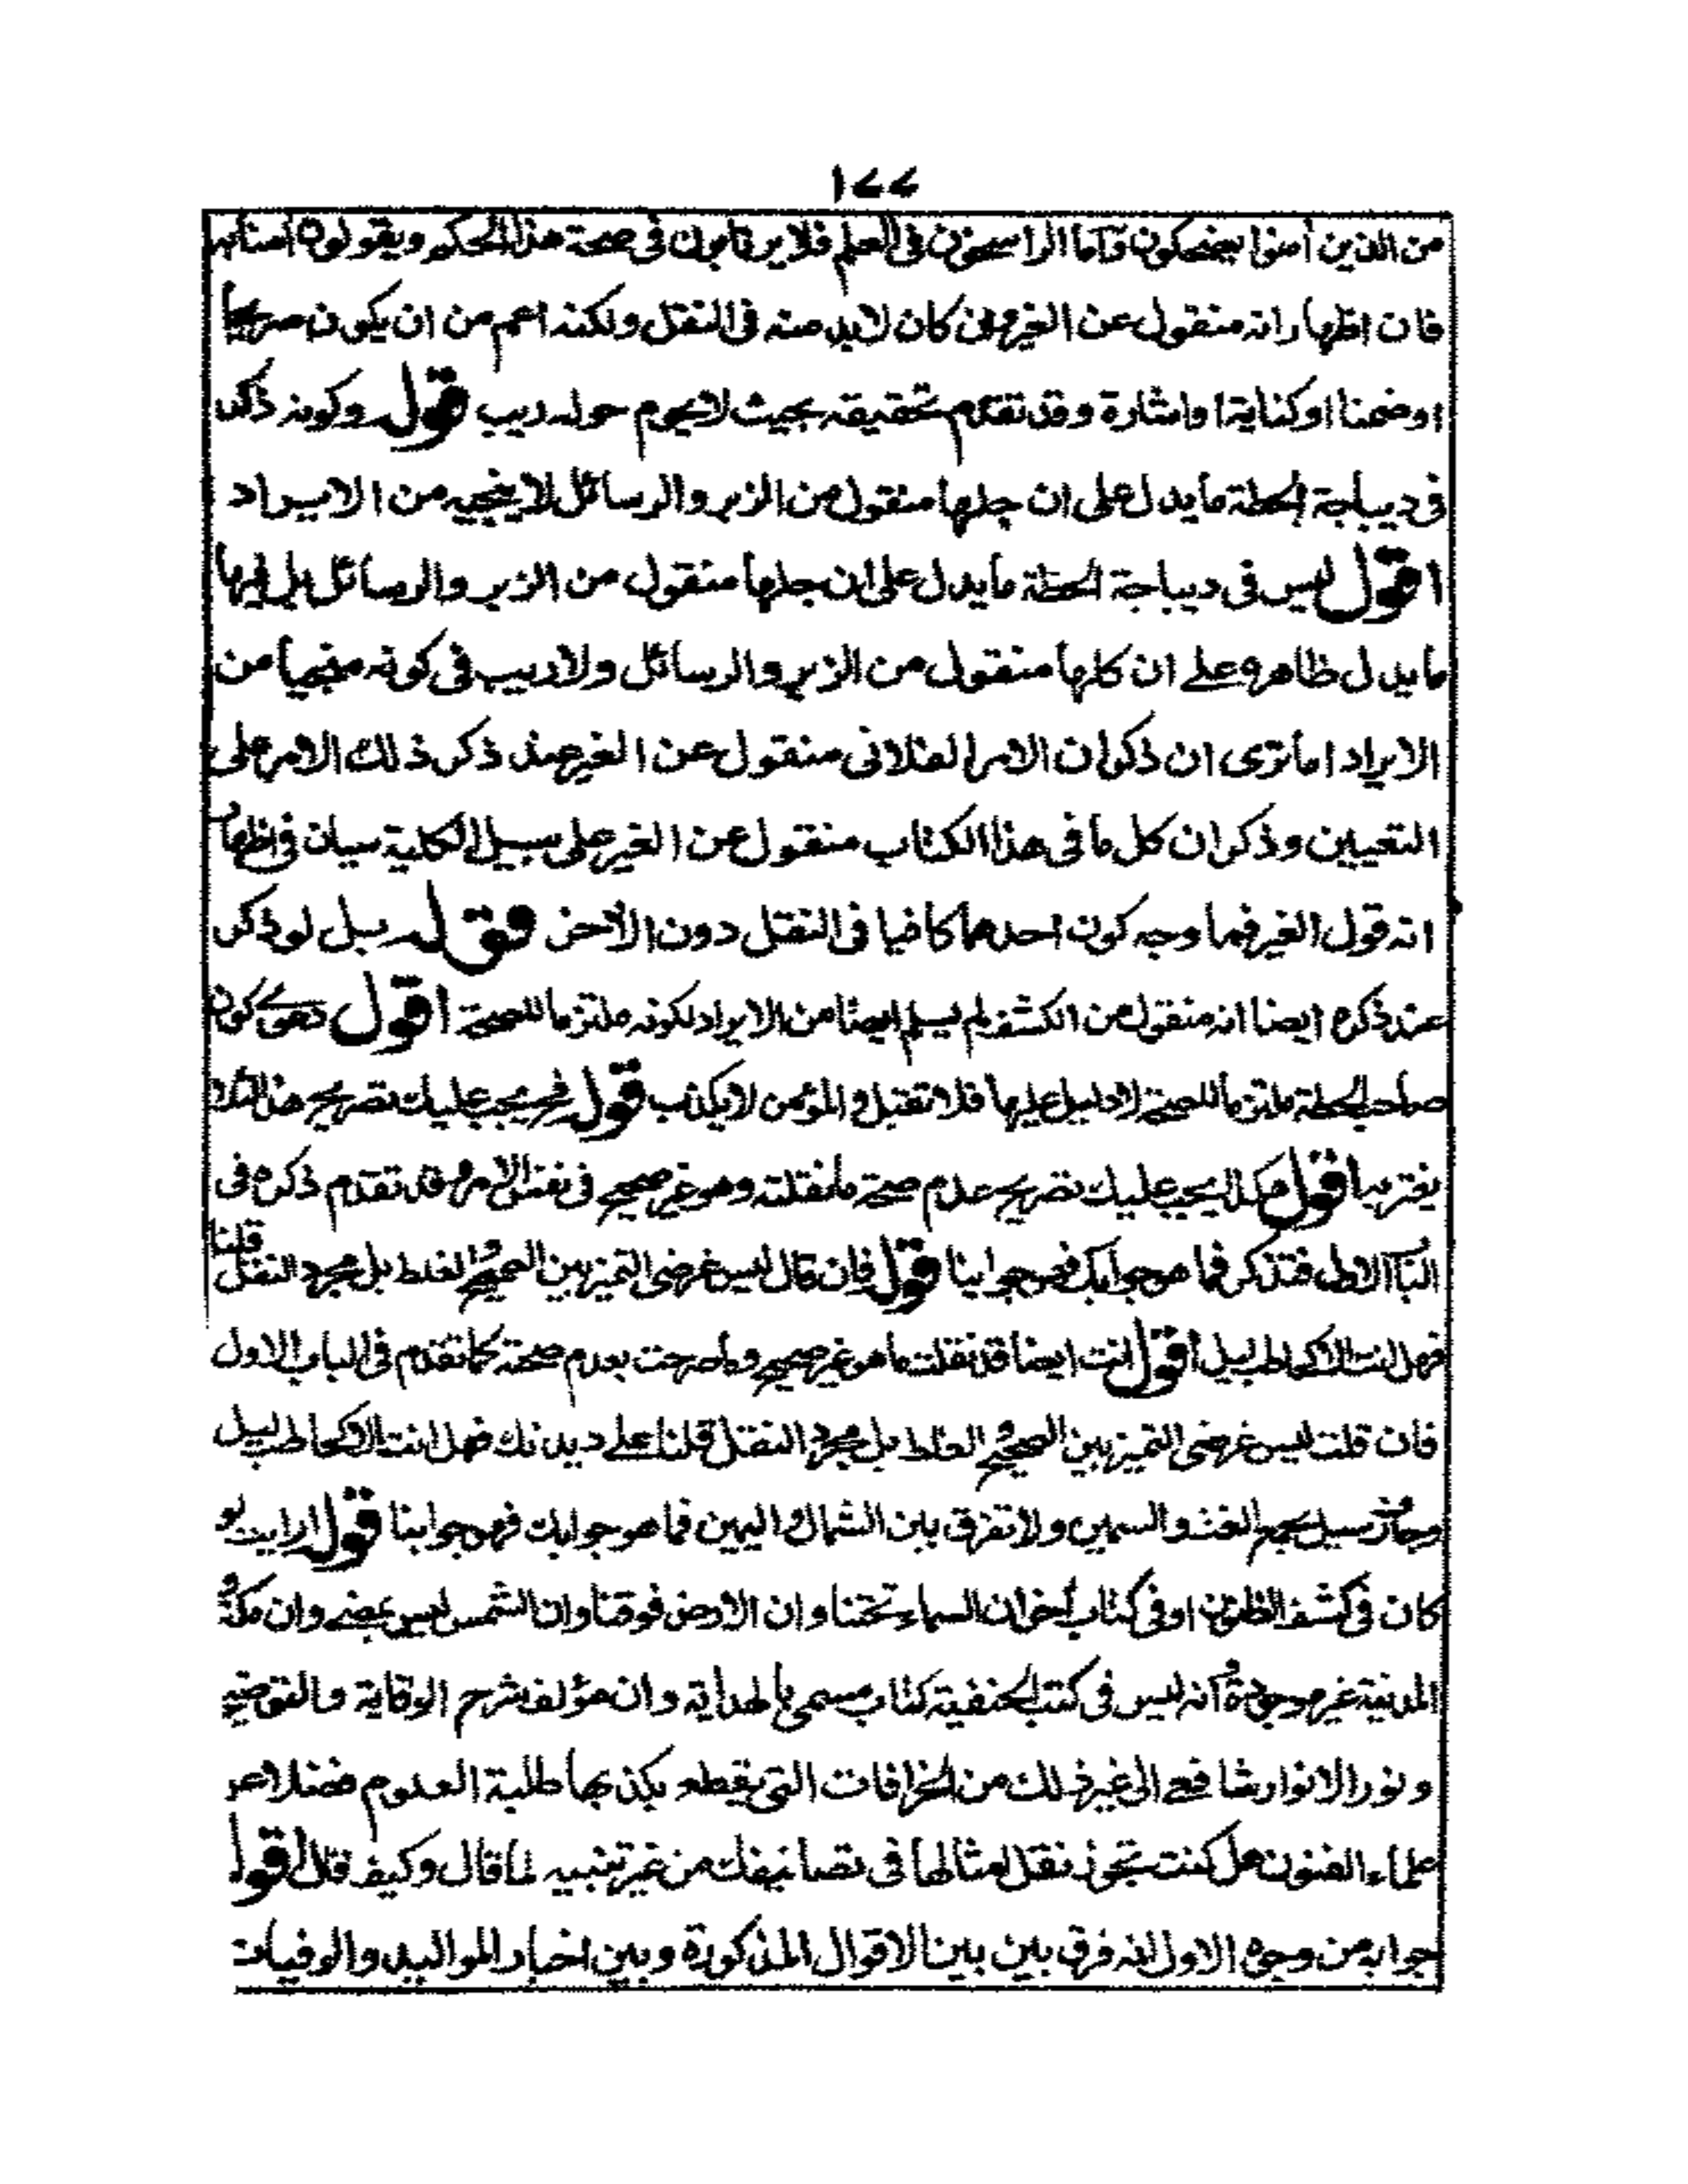 ١٧٧
من الذين امنوا يضحكون واما الراسخون فى العلم فلا يرتابون فى صحة هذا الحكم ويقولون امنا به
فان اظهار انه منقول عن الغير وان كان لابد منه فى النقل ولكنه اعم من ان يكون صريحا
اوضمنا اوكناية او اشارة وقد تقدم تحقيقه بحيث لا يحوم حوله ريب قوله وكونه ذكر
فى ديباجة الحطة ما يدل على ان جلها منقول من الزبر والرسائل لا ينجيه من الايراد
اقول ليس فى ديباجة الحطة ما يدل على ان جلها منقول من الزبر والرسائل بل فيها
ما يدل ظاهره على ان كلها منقول من الزبر والرسائل ولا ريب فى كونه منجيا من
الايراد اما ترى ان ذكر ان الامر الفلانى منقول عن الغير عند ذكر ذلك الامر على
التعيين وذكر ان كل ما فى هذا الكتاب منقول عن الغير على سبيل الكلية سيان فى اظهار
انه قول الغير فما وجه كون احدهما كافيا فى النقل دون الاخر قوله بل لو ذكر
عند ذكره ايضا انه منقول من الكشف لم يسلم ايضا من الايراد لكونه ملتزما للصحة اقول دعوى كون
صاحب الحطة ملتزما للصحة لا دليل عليها فلا تقبل والمؤمن لا يكذب قوله فيجب عليك تصريح هذا لئلا
يغتر به اقول هكذا يجب عليك تصريح عدم صحة ما نقلته وهو غير صحيح فى نفس الامر وقد تقدم ذكره فى
الباب الاول فتذكر فما هو جوابك فهو جوابنا قوله فان قال ليس غرضى التميز بين الصحيح والغلط بل مجرد النقل قلنا
فهل انت الا كحاطب ليل اقول انت ايضا قد نقلت ما هو غير صحيح وما صرحت بعدم صحته كما تقدم فى الباب الاول
فان قلت ليس غرضى التميز بين الصحيح والغلط بل مجرد النقل قلنا على ديدنك فهل انت الا كحاطب ليل
وجارف سيل يجمع الغث والسمين ولا تفرق بين الشمال واليمين فما هو جوابك فهو جوابنا قوله ارايت لو
كان فى كشف الظنون او فى كتاب اخر ان السماء تحتنا وان الارض فوقنا وان الشمس ليس بمضئ وان مكة و
المدينة غير موجودة وانه ليس فى كتب الحنفية كتاب مسمى بالهداية وان مؤلف شرح الوقاية والتوضيح
ونور الانوار شافعى الى غير ذلك من الخرافات التى يقطع بكذبها طلبة العلوم فضلا عن
علماء الفنون هل كنت تجوز نقل امثالها فى تصانيفك من غير تنبيه لما قال وكيف قال اقول
جوابه من وجوه الاول انه فرق بين بين الاقوال المذكورة وبين اخبار المواليد والوفيات